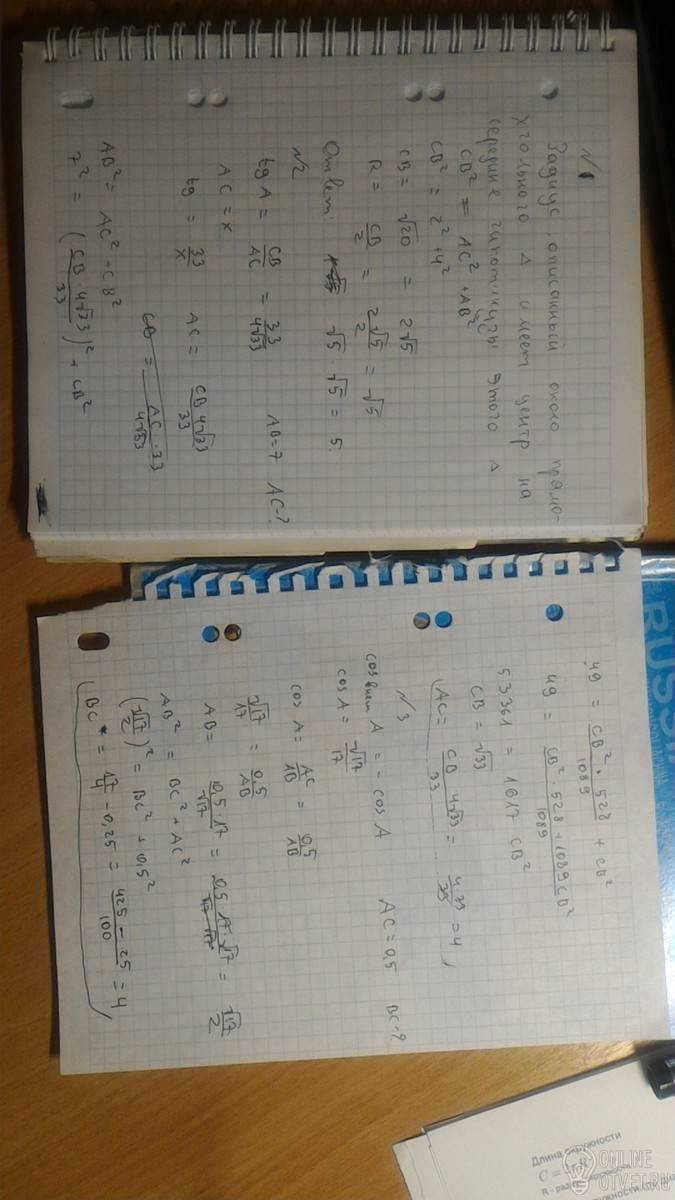 №1
Задиус, описанный около прямо-
угольного Δ имеет центр на
середине гипотинузы этого Δ
CB² = AC² + AB²
CB² = 2² + 4²
CB = √20 = 2√5
R = CB/2 = 2√5/2 = √5
Ответ: √5 √5 = 5.
№2
tg A = CB/AC = 33/4√33 AB=7 AC-?
AC = x
tg = 33/x AC = CB 4√33/33
CB = AC·33/4√33
AB² = AC² + CB²
7² = (CB 4√33/33)² + CB²
49 = CB² · 528/1089 + CB²
49 = CB² · 528 + 1089CB²/1089
53361 = 1617 CB²
CB = √33
AC = CB 4√33/33 = 4·33/33 = 4
№3
cos внеш A = - cos A AC = 0,5 BC-?
cos A = √17/17
cos A = AC/AB = 0,5/AB
√17/17 = 0,5/AB
AB = 0,5·17/√17 = 0,5·17·√17/17 = √17/2
AB² = BC² + AC²
(√17/2)² = BC² + 0,5²
BC = 17/4 - 0,25 = 4
RUSSI
Длина окружности
ONLINE
OTVET.RU